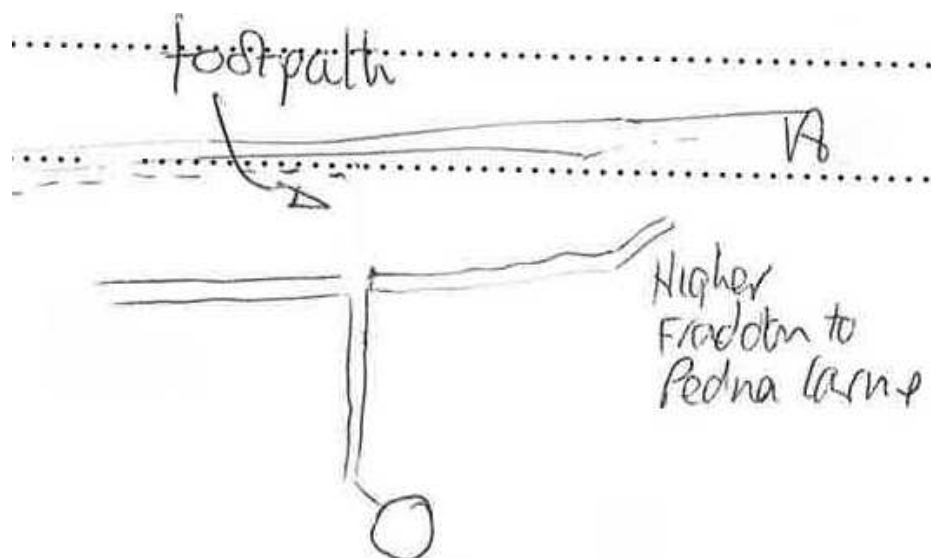 footpath
Higher
Fraddon to
Pedna Carne